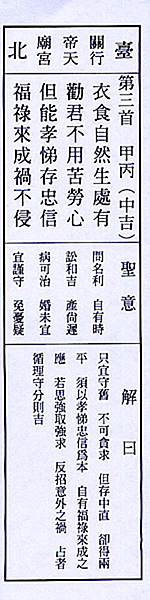 臺北
關帝廟
行天宮
第三首 甲丙（中吉）
衣食自然生處有
勸君不用苦勞心
但能孝悌存忠信
福祿來成禍不侵
聖意
問名利 自有時
訟和吉 產尚遲
病可治 婚未宜
宜謹守 免憂疑
解曰
只宜守舊 不可貪求 但存中直 卻得兩
平 須以孝悌忠信為本 自有福祿來成之
應 若思強取強求 反招意外之禍 占者
循理守分則吉